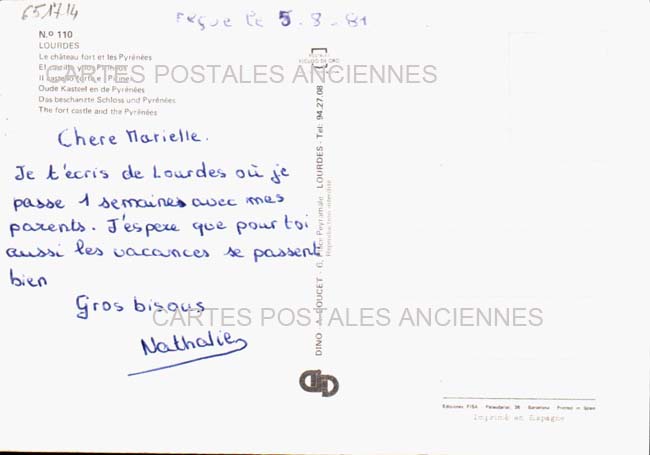 651714
reçue le 5.8.81
N.º 110
LOURDES
Le château fort et les Pyrénées
El castillo y los Pirineos
Il castello forte e i Pirinei
Oude Kasteel en de Pyrénées
Das beschanzte Schloss und Pyrénées
The fort castle and the Pyrénées
CARTES POSTALES ANCIENNES
Chere Marielle.
Je t'écris de Lourdes où je
passe 1 semaines avec mes
parents. J'espere que pour toi
aussi les vacances se passent
bien
Gros bisous
Nathalie
CARTES POSTALES ANCIENNES
DINO - A. DOUCET - 6, Place Peyramale - LOURDES - Tel: 94.27.08
Reproduction interdite
POSTALES
ESCUDO DE ORO
Ediciones FISA Palaudarias, 26 Barcelona Printed in Spain
Imprimé en Espagne